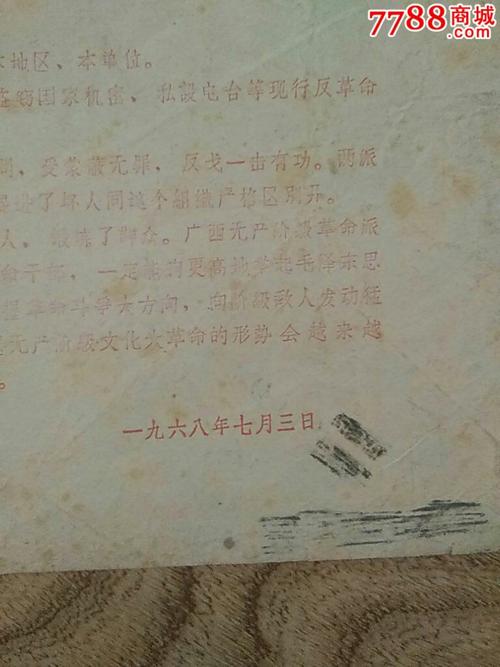 7788商城
.com
本地区、本单位。
盗窃国家机密、私設电台等现行反革命
受蒙蔽无罪，反戈一击有功。两派
进了坏人同这个組織严格区別开。
人，鍛炼了群众。广西无产阶级革命派
命干部，一定能够更高地举起毛泽东思
革命斗爭大方向，向阶级敌人发动猛
无产阶级文化大革命的形势会越来越
。
一九六八年七月三日